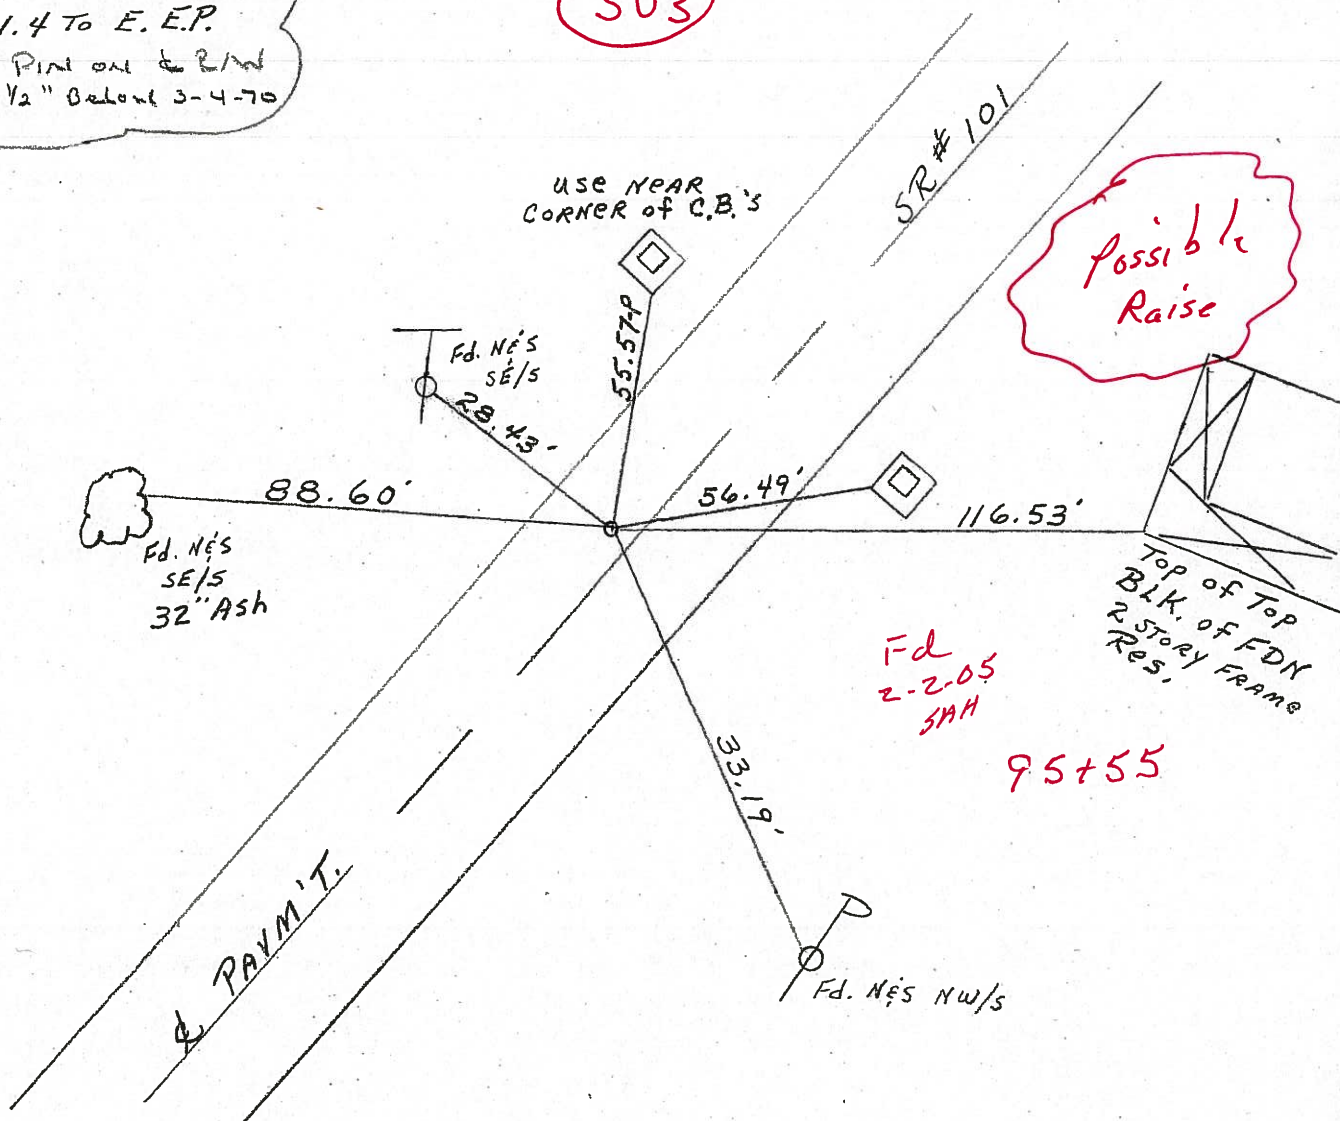 1.4 To E. E.P.
Pin on ℄ R/W
1/2" Below 3-4-70
503
SR # 101
use NEAR
CORNER of C.B.'s
Possible
Raise
55.57
Fd. N&S
SE/S
28.43'
88.60'
56.49'
116.53'
Fd. N&S
SE/S
32" Ash
Top of Top
BLK. of FDN
2 STORY FRAME
Res.
Fd
2-2-05
SAH
95+55
33.19'
℄ PAVM'T.
Fd. N&S NW/S